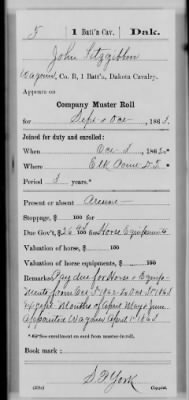 F 1 Batt'n Cav. Dak.
John Fitzgibbon
Wagoner, Co. B, 1 Batt'n, Dakota Cavalry.
Appears on
Company Muster Roll
for Sept & Oct, 1863.
Joined for duty and enrolled:
When Oct 1, 1862*
Where Elk D.T.*
Period 3 years.*
Present or absent Present
Stoppage, $ 100 for
Due Gov't, $ 100 for Horse Equipments
Valuation of horse, $ 100
Valuation of horse equipments, $ 100
Remarks: Pay due for Horse & Equip-
ments from Oct 1862 to Oct 31 1863
except Months of April May & June
Appointed Wagoner April 1" 1863
* See enrollment on card from muster-in roll.
Book mark:
S. P. York
(358) Copyist.